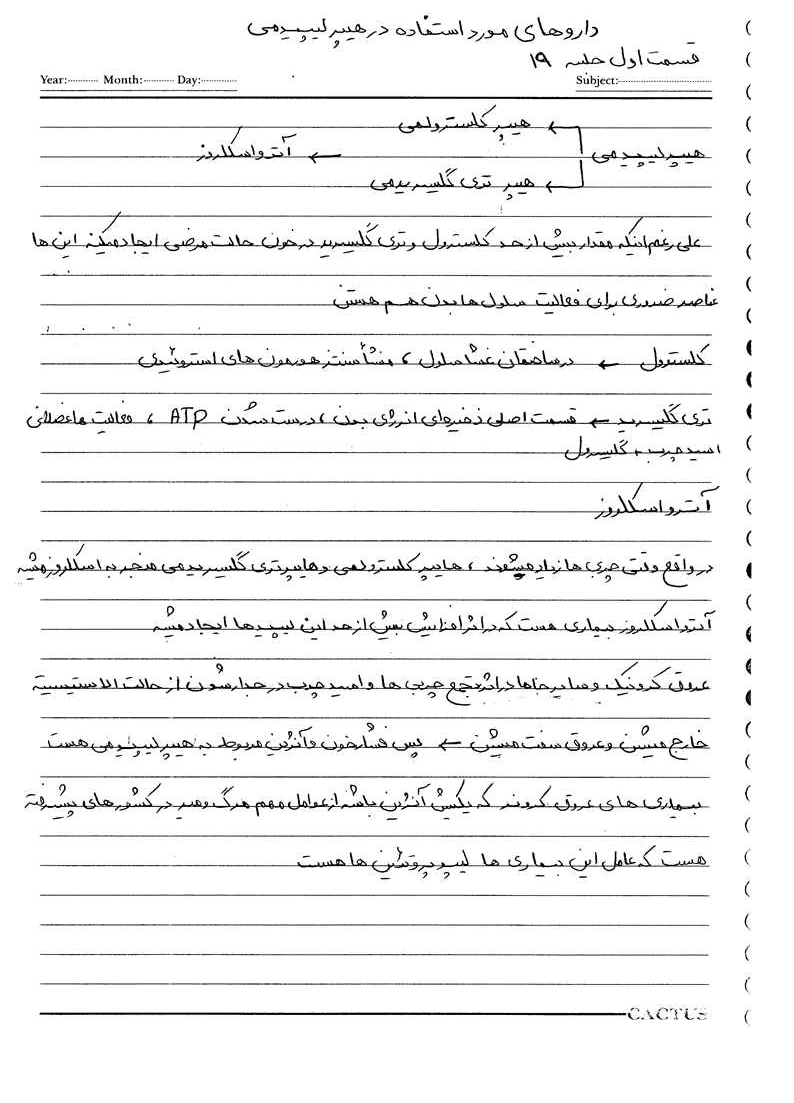 داروهای مورد استفاده در هیپرلیپیدمی
قسمت اول جلسه ۱۹
Year: Month: Day: Subject:
هیپر کلسترولمی ←
هیپرلیپیدمی ← آترواسکلروز
هیپر تری گلیسریدمی ←
علی رغم اینکه مقدار بیش از حد کلسترول و تری گلیسیرید در خون حالت مرضی ایجاد میکنه این ها
عناصر ضروری برای فعالیت سلول ها بدن هم هستن
کلسترول ← در ساختمان غشا سلول ، منشأ سنتز هورمون های استروئیدی
تری گلیسیرید ← قسمت اصلی ذخیره ای انرژی بدن ، درست شدن ATP ، فعالیت ها عضلانی
اسید چرب + گلیسرول
آترواسکلروز
در واقع وقتی چربی ها زیاد میشوند ، هایپر کلسترولمی و هایپرتری گلیسریدمی منجر به اسکلروز میشه
آترواسکلروز بیماری هست که در اثر افزایش بیش از حد این لیپیدها ایجاد میشه
عروق کرونیک و سایر جاها در اثر تجمع چربی ها و اسید چرب در جدارشون از حالت الاستیسیته
خارج میشن و عروق سفت میشن ← پس فشار خون و آنژین مربوط به هیپرلیپیدمی هست
بیماری های عروق کرونر که یکیش آنژین باشه از عوامل مهم مرگ و میر در کشورهای پیشرفته
هست که عامل این بیماری ها لیپوپروتئین ها هست
CACTUS